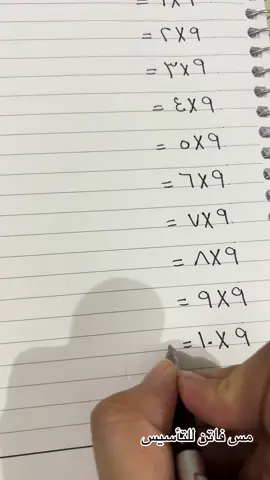 ٩×٢ =
٩×٣ =
٩×٤ =
٩×٥ =
٩×٦ =
٩×٧ =
٩×٨ =
٩×٩ =
٩×١٠ =
مس فاتن للتأسيس